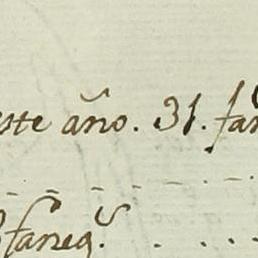 este año. 31. fan
faneg.s